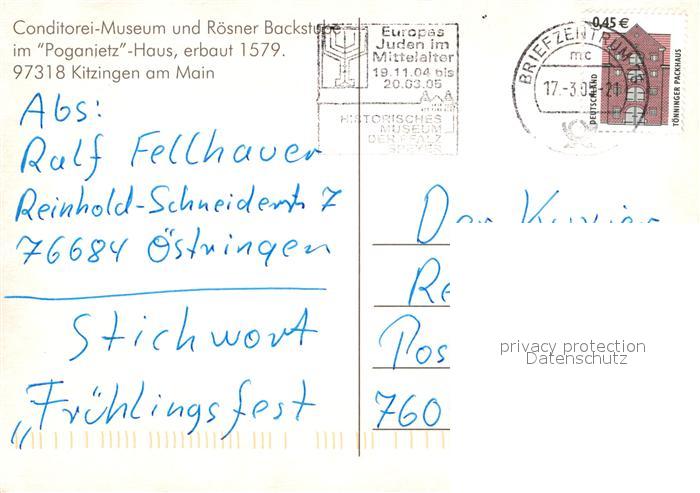 Conditorei-Museum und Rösner Backstube
im "Poganietz"-Haus, erbaut 1579.
97318 Kitzingen am Main
Europas
Juden im
Mittelalter
19.11.04 bis
20.03.05
HISTORISCHES
MUSEUM
DER PFALZ
SPEYER
BRIEFZENTRUM 76
mc
17.-3.05-21
0,45 €
DEUTSCHLAND
TÖNNINGER PACKHAUS
Abs:
Ralf Fellhauer
Reinhold-Schneiderstr 7
76684 Östringen
Stichwort
„Frühlingsfest
Der Kurier
Re
Pos
760
privacy protection
Datenschutz